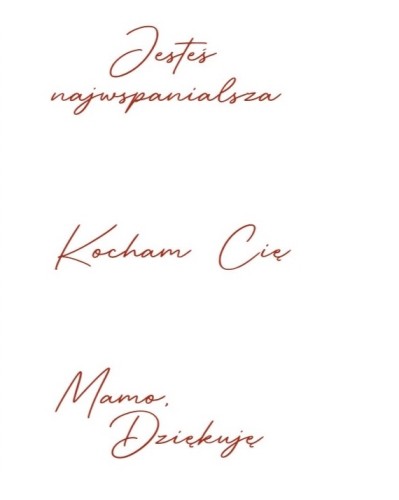 Jesteś
najwspanialsza
Kocham Cię
Mamo,
Dziękuję